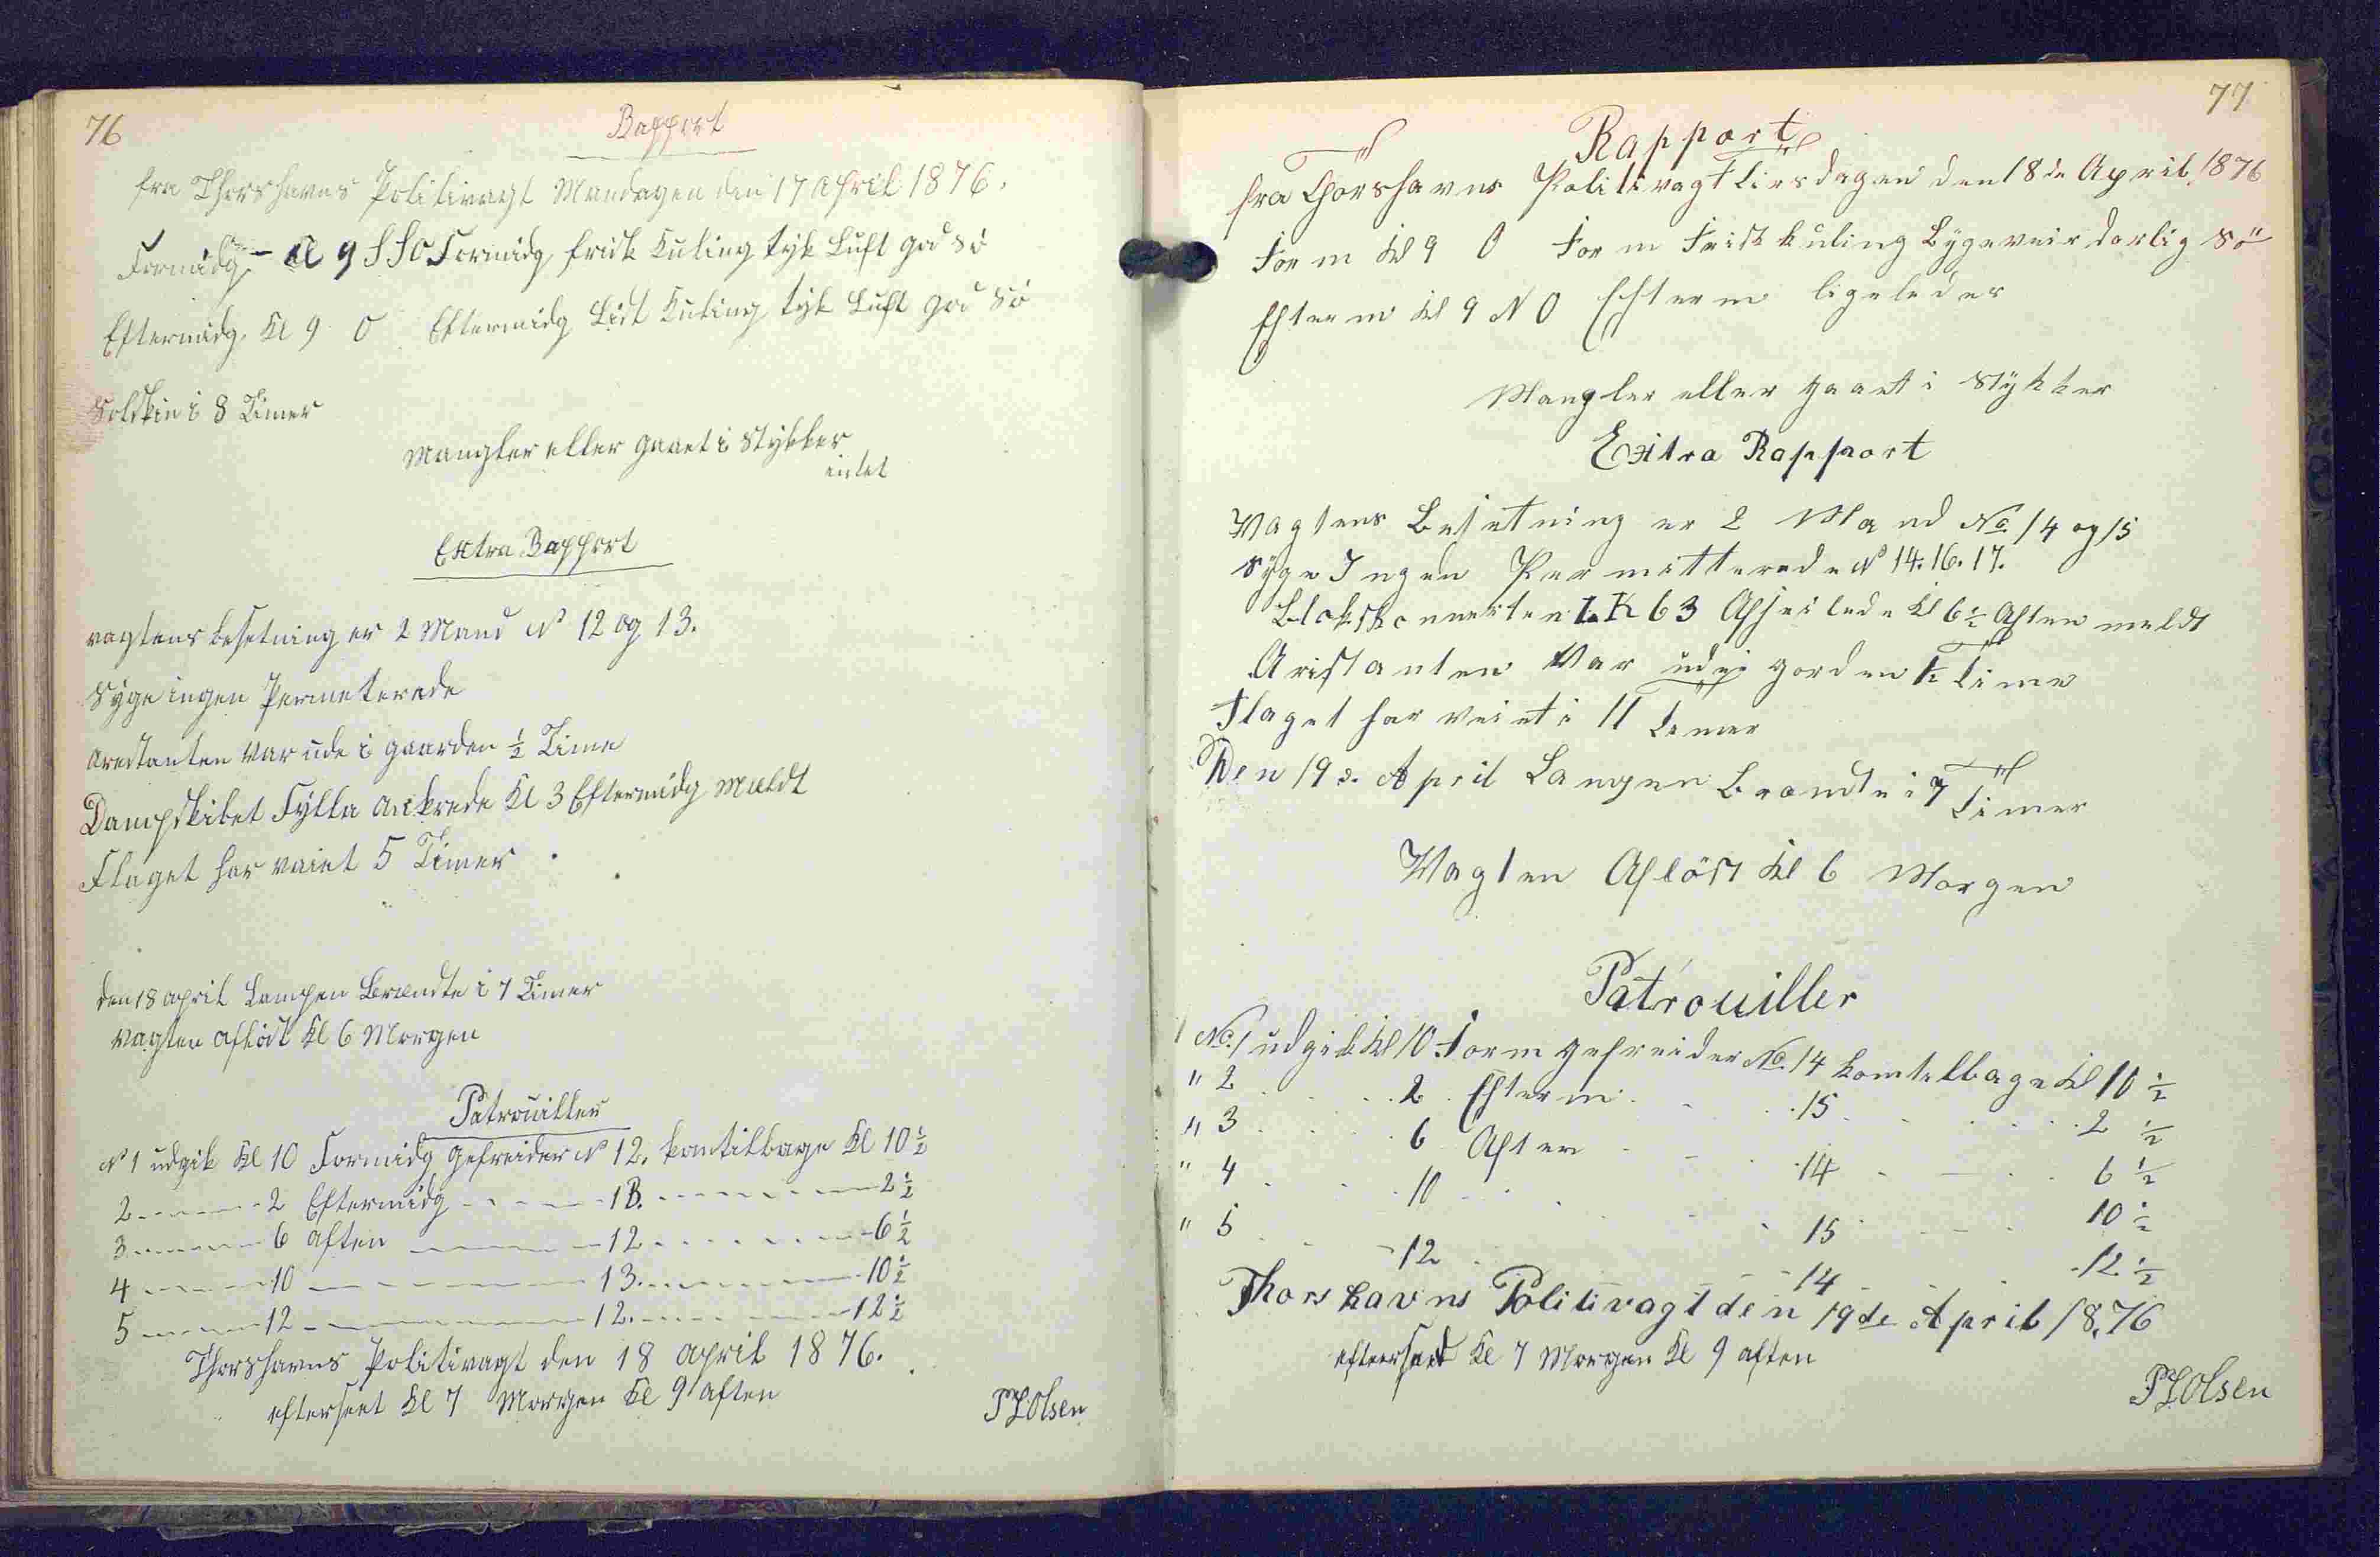 76
Rapport
fra Thorshavns Politivagt Mandagen den 17 April 1876.
Formidg - Kl 9 SSO Formidg frisk Kuling tyk Luft god Sö
Eftermidg. Kl 9 O Eftermidg Lidt Kuling tyk Luft god Sö
Solskin i 8 Timer
Mangler eller gaaet i Stykker
intet
Extra Rapport
vagtens besetning er 2 Mand No 12 og 13.
Syge ingen Permeterede
Arestanten var ude i gaarden ½ Time
Dampskibet Fylla ankrede Kl 3 Eftermidg Mældt
Flaget har vaiet 5 Timer
den 18 april Lampen Brændte i 7 Timer
vagten aflöst Kl 6 Morgen
Patrouiller
No 1 udgik Kl 10 Formidg gefreider No 12. komtilbage Kl 10 ½
2 - - - 2 Eftermidg - - - 13. - - - 2 ½
3 - - - 6 aften - - - 12 - - - 6 ½
4 - - - 10 - - - 13. - - - 10 ½
5 - - - 12 - - - 12. - - - 12 ½
Thorshavns Politivagt den 18 April 1876.
efterseet Kl 7 Morgen Kl 9 aften
Olsen
77
Rapport
fra Thorshavns Politivagt Tirsdagen den 18de April 1876
Form Kl 9 O Form Frisk kuling Bygeveir darlig Sö
Efterm Kl 9 NO Efterm ligeledes
Mangler eller gaaet i Stykker
Extra Rapport
Vagtens Besetning er 2 Mand No. 14 og 15
Syge Ingen Permitterede No 14. 16. 17.
K 63 Afseilede Kl 6 ½ Aften meldt
Aristanten Var ude i gorden ½ Time
Flaget har veiet i 11 Timer
Den 19d. April Lampen Brændte i 7 Timer
Vagten Aflöst Kl 6 Morgen
Patrouiller
No. 1 udgik Kl 10 Form gefreider No. 14 komtelbage Kl 10 ½
" 2 . . . 2 Efterm . . . 15 . . . 2 ½
" 3 . . . 6 Aften . . . 14 . . . 6 ½
" 4 . . . 10 . . . 15 . . . 10 ½
" 5 . . . 12 . . . 14 . . . 12 ½
Thorshavns Politivagt den 19de April 1876
efterseet Kl 7 Morgen Kl 9 aften
Olsen